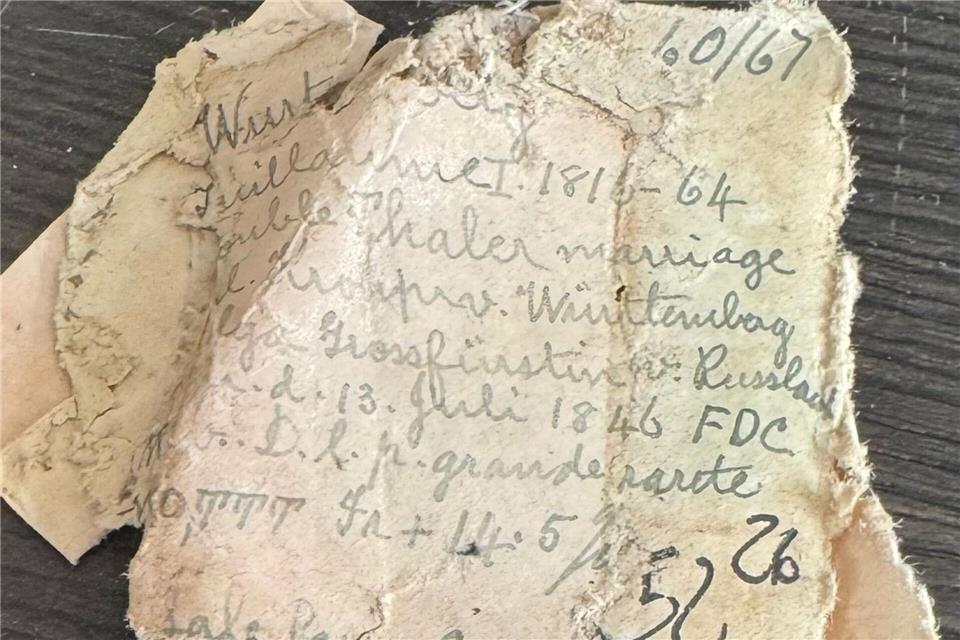 60/67
Wurt
Guillaume I. 1816-64
Thaler marriage
d. Kronprv. Würtemberg
Grossfürstin v. Russland
d. 13. Juli 1846 FDC
D. l. p. grande rareté
Fr + 14.5
26